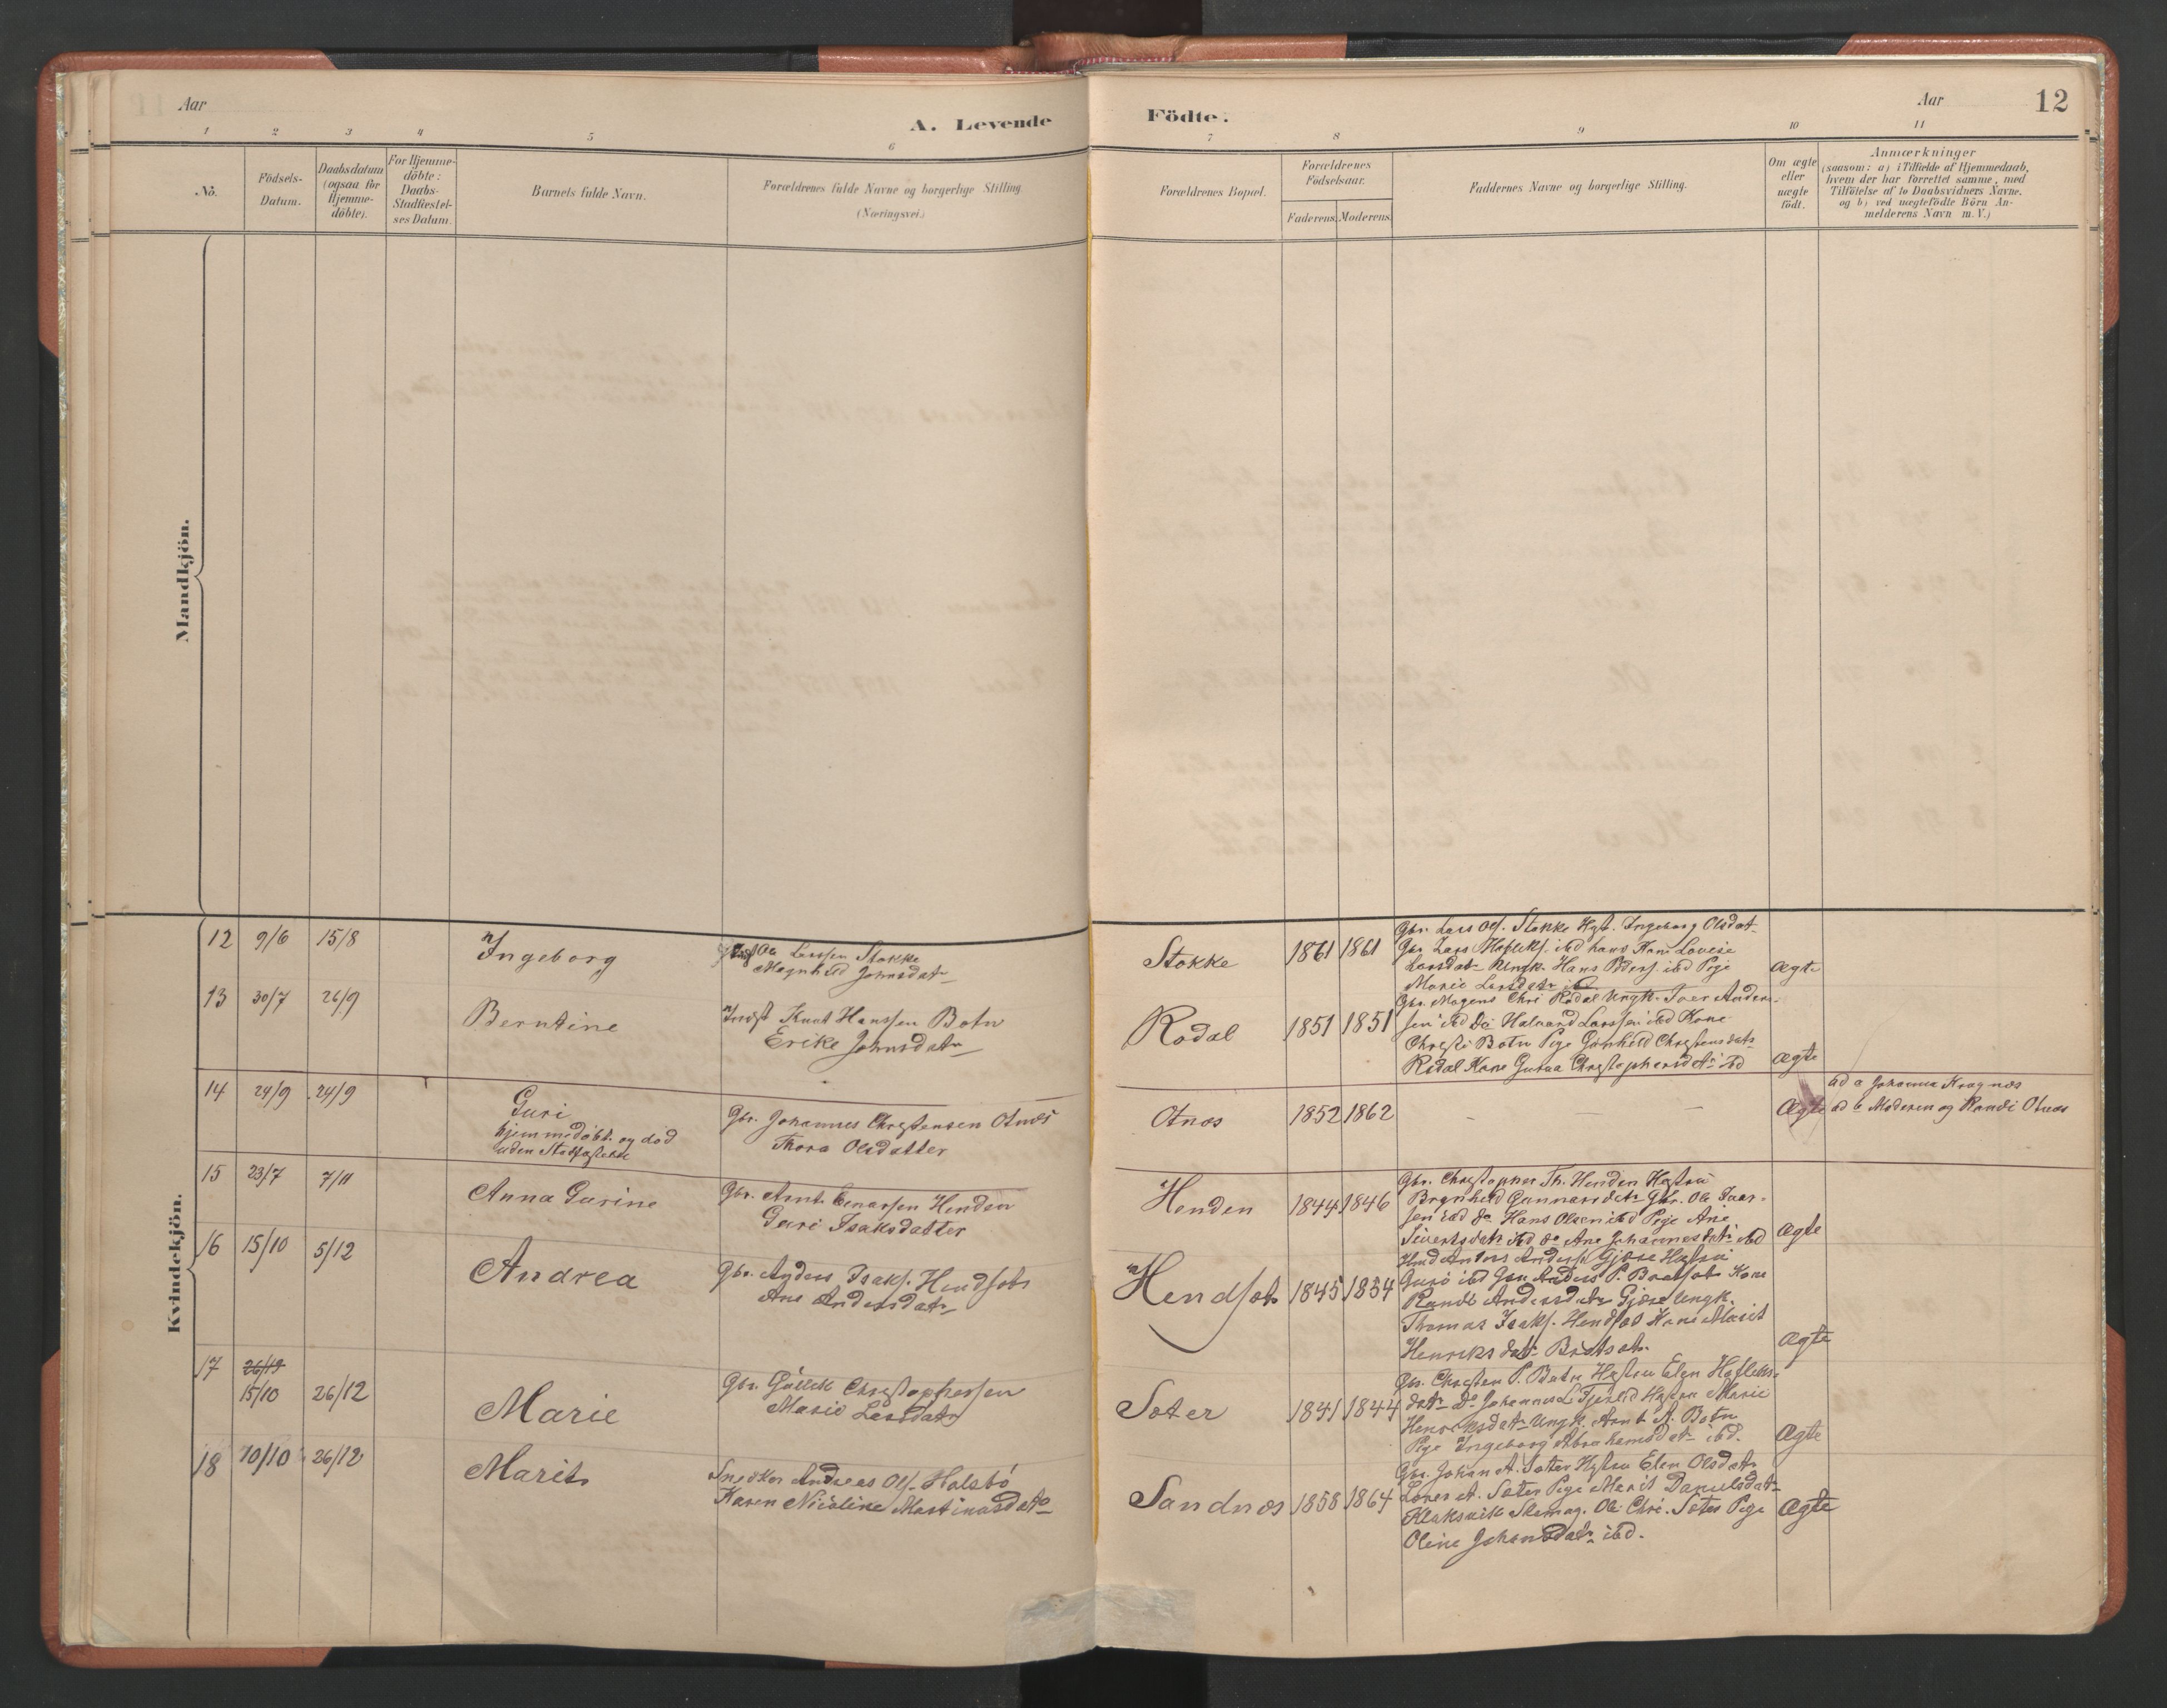 Aar
A. Levende
Födte.
Aar
12
1 2 3 4 5 6 7 8 9 10 11
Nô.
Födsels-
Datum.
Daabsdatum
(ogsaa for
Hjemme-
döbte).
For Hjemme-
döbte:
Daabs-
Stadfæstel-
ses Datum.
Barnets fulde Navn.
Forældrenes fulde Navne og borgerlige Stilling.
(Næringsvei.)
Forældrenes Bopæl.
Forældrenes
Födselsaar.
Faderens. Moderens.
Faddernes Navne og borgerlige Stilling.
Om ægte
eller
uægte
födt.
Anmærkninger
(saasom: a) i Tilfælde af Hjemmedaab,
hvem der har forrettet samme, med
Tilföielse af to Daabsvidners Navne,
og b) ved uægtefödte Börn An-
melderens Navn m.V.)
Mandkjön.
Kvindekjön.
12 9/6 15/8
Ingeborg
Ole Larssen Stokke
Magnhild Johnsdatr
Stokke
1861 1861
Gbr. Lars Ols. Stokke Hgst. Ingeborg Olsdatr
Gbr Lars ibd hans Kone Lovise
Larsdatr Ungk. Hans Peders. ibd Pige
Marie Larsdatr ibd
Ægte
13 30/7 26/9
Berntine
Indst Knut Hanssen Botn
Erike Johnsdatr
Rødal
1851 1851
Gbr. Mogens Chri Rødal Ungk. Iver Anders-
sen ibd Do Halvard Larssen ibd Kone
Christi Botn Pige Gunhild Christensdatr
Rødal Kone Guraa Christophersdatr ibd
Ægte
14 24/9 24/9
Guri
hjemmedøbt og død
uden Stadfæstelse
Gbr. Johannes Christensen Otnæs
Thora Olsdatter
Otnæs
1852 1862
— — —
Ægte
ad a Johanna Kragnæs
ad b Moderen og Randi Otnæs
15 23/7 7/11
Anna Gurine
Gbr. Arnt Einarssen Henden
Guri Isaksdatter
Henden
1844 1846
Gbr. Christopher Th. Henden Hustru
Brynhild Gunnarsdatr Gbr. Ole Ivar-
sen ibd do Hans Olsen ibd Pige Ane
Sivertsdatr ibd do Ane Johannesdatr ibd
Ægte
16 15/10 5/12
Andrea
Gbr. Anders Isaks. Hendset
Ane Andersdatr
Hendset
1845 1854
Anders Anders. Gjøse Hustru
Guri ibd Gbr Anders P. Bratset Kone
Randi Andersdatr Gjøse Ungk.
Thomas Isaks. Hendset Kone Marit
Henriksdatr Bratset.
Ægte
17 26/19
15/10 26/12
Marie
Gbr. Gullik Christophersen
Marie Larsdatr
Søter
1841 1844
Gbr. Christen P. Botn Hustru Elen Hafleks-
datr do Johannes L Fjeld Hustru Marie
Henriksdatr Ungk. Arnt A. Botn
Pige Ingeborg Abrahamsdatr ibd.
Ægte
18 10/10 26/12
Marit
Snedker Andreas Ols. Halsbø
Karen Nicoline Martinusdatr
Sandnæs
1858 1864
Gbr. Johan A. Søter Hustru Elen Olsdatr
A. Søter Pige Marit Danielsdatr
Klaksvik Skomag. Ole Chri. Søter Pige
Oline Johansdatr ibd.
Ægte